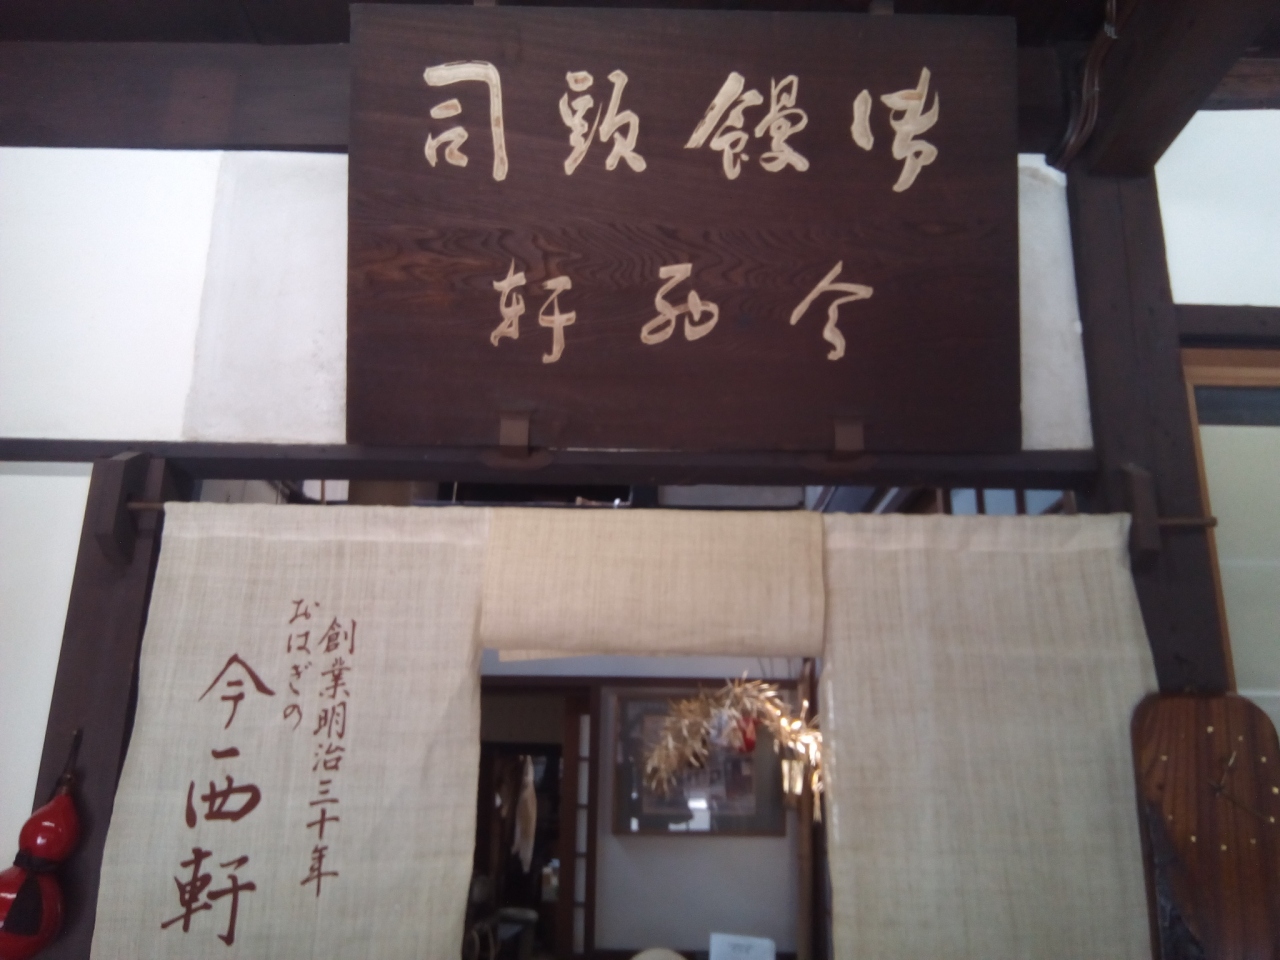 御饅頭司
今西軒
創業明治三十年
おはぎの
今西軒